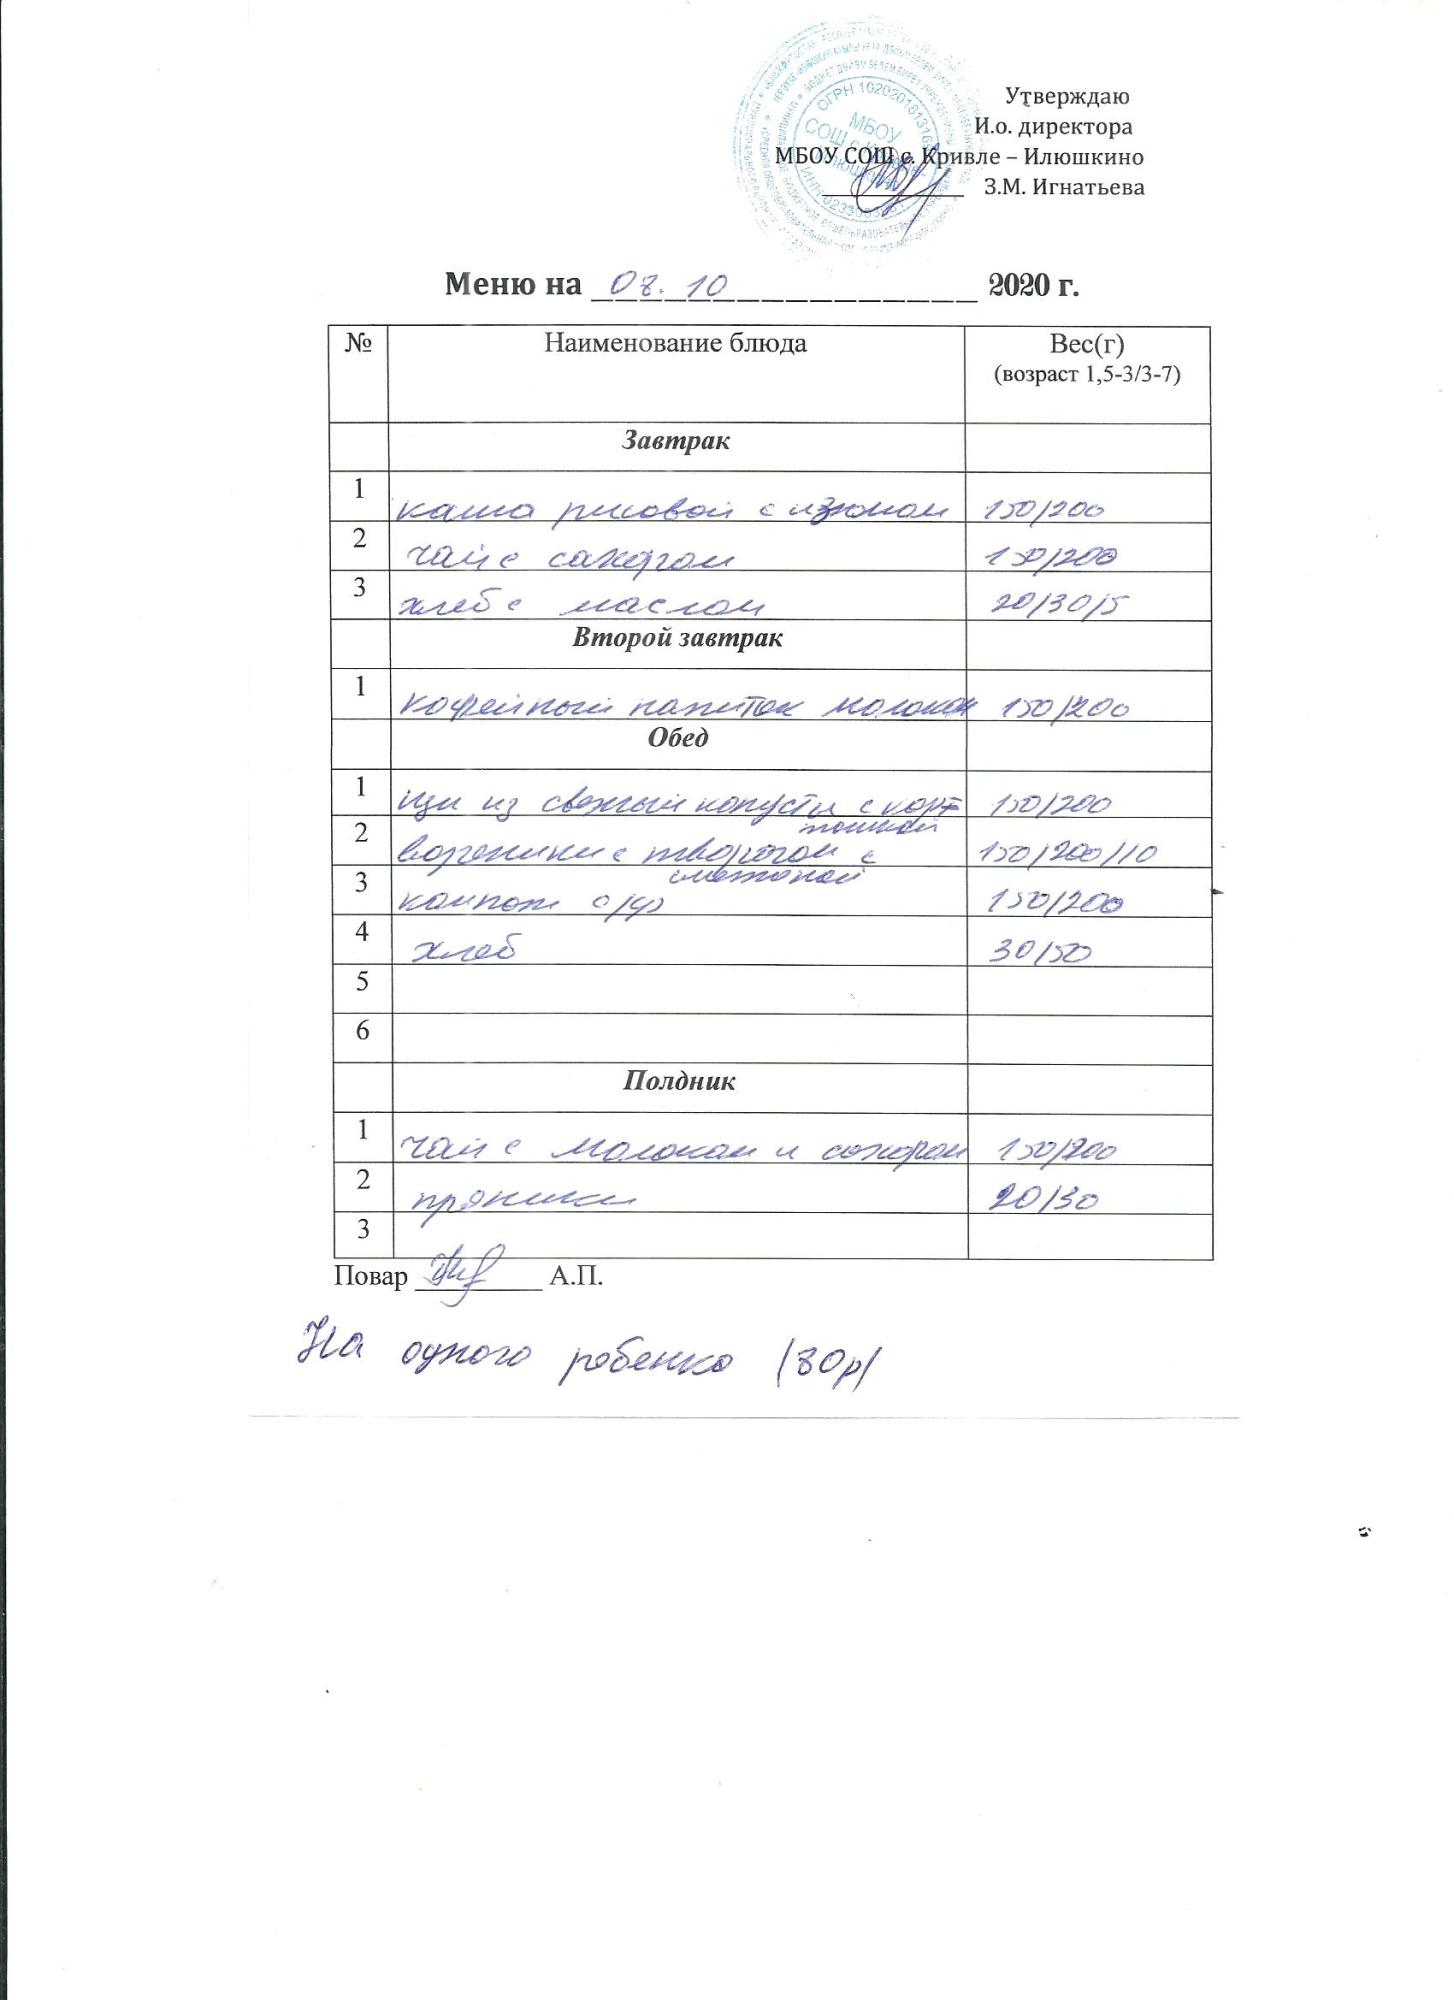 Утверждаю
И.о. директора
МБОУ СОШ с. Кривле – Илюшкино
З.М. Игнатьева
ОГРН 102020181316
МБОУ
СОШ с. Кривле
Илюшкино
Меню на 08. 10 2020 г.
№ Наименование блюда Вес(г)
(возраст 1,5-3/3-7)
Завтрак
1 каша рисовой с изюмом 150/200
2 чай с сахаром 150/200
3 хлеб с маслом 20/30/5
Второй завтрак
1 кофейный напиток молоком 150/200
Обед
1 щи из свежый капусты с карт 150/200
тошкой
2 вареники с творогом с 150/200/10
сметаной
3 компот с/ф 150/200
4 хлеб 30/50
5
6
Полдник
1 чай с молоком и сахаром 150/200
2 пряники 20/30
3
Повар А.П.
На одного ребенка (80р)